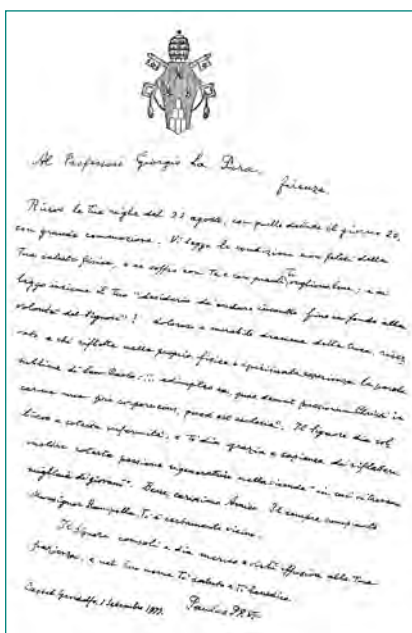 Al Professore Giorgio La Pira,
Firenze.
Ricevo le Tue righe del 23 agosto, con quelle datate il giorno 20,
con grande commozione. Vi leggo le condizioni non felici della
Tua salute fisica, e ne soffro con Te e con quanti Ti vogliono bene; e vi
leggo insieme il Tuo "desiderio di andare incontro fino in fondo alla
volontà del Signore"! dolorosa e mirabile della croce,
solo a chi riflette nella propria fisica e spirituale esperienza la parola
sublime di San Paolo: "... adimpleo ea, quae desunt passionum Christi in
carne mea pro corpore eius, quod est ecclesia". Il Signore dia
a cotesta infermità, e Ti dia grazia e sapienza di riflettere
inoltre cotesta passione rigeneratrice nelle vicende "in cui si trovano
migliaia di giovani". Bene, carissimo Amico. Il sempre compianto
Monsignor Rampolla Ti è certamente vicino.
Il Signore consoli e dia merito e virtù effusiva alla Tua
pazienza, e nel Suo nome Ti saluto e Ti benedico.
Castel Gandolfo, 1 Settembre 1977.
Paulus PP. VI